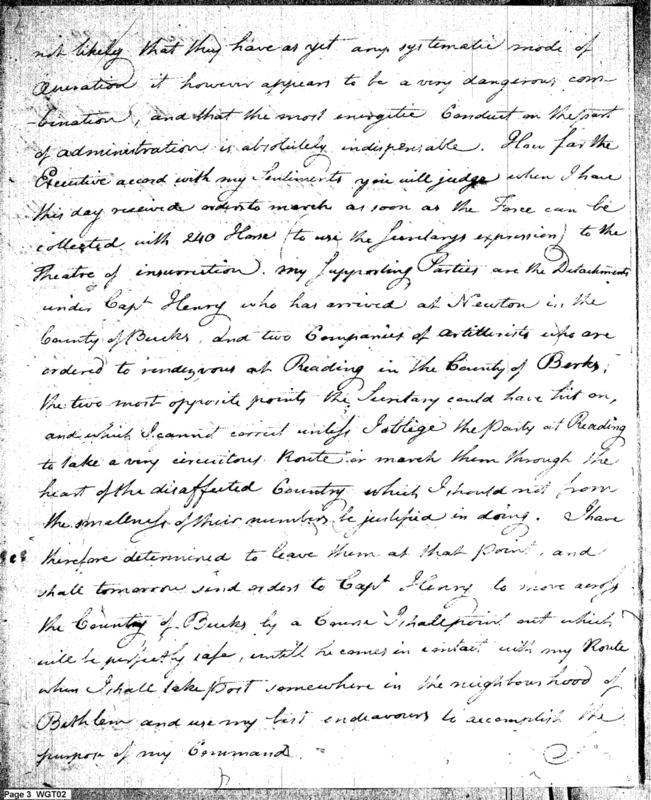 not likely that they have as yet any systematic mode of
operation it however appears to be a very dangerous com-
-bination, and that the most energetic Conduct on the part
of administration is absolutely indispensable. How far the
Executive accord with my Sentiments you will judge when I have
this day received orders to march as soon as the Force can be
collected with 240 Horse (to use the Secretarys expression) to the
Theatre of insurrection. my Supporting Parties are the Detachments
under Capt Henry who has arrived at Newton in the
County of Bucks, and two Companies of artillerists who are
ordered to rendezvous at Reading in the County of Berks;
the two most opposite points the Secretary could have hit on,
and which I cannot correct unless I oblige the Party at Reading
to take a very circuitous Route or march them through the
heart of the disaffected Country which I should not from
the smallness of their numbers be justified in doing. I have
therefore determined to leave them at that point, and
shall tomorrow send orders to Capt Henry to move across
the Country of Bucks by a Course I shall point out which
will be perfectly safe, untill he comes in contact with my Route
when I shall take post somewhere in the neighbourhood of
Bethlem and use my best endeavours to accomplish the
purpose of my Command.
Page 3 WGT02